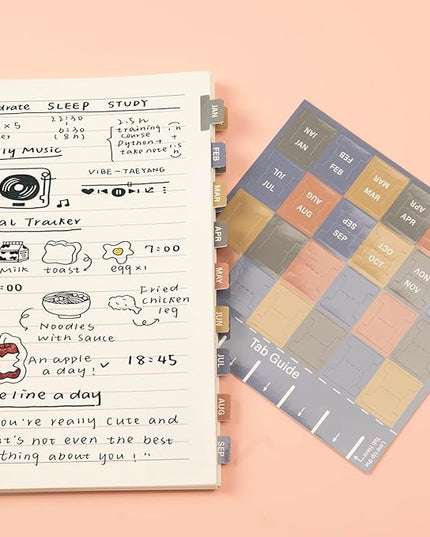 drate SLEEP STUDY
x 5
22:30
6:30
(8h)
2.5 h
training
course
Python +
take note
1 h
+
1.5 h
ly Music
VIBE - TAEYANG
al Tracker
Milk toast egg x1 7:00
:00
Noodles
with sauce
Fried
chicken
leg
An apple
a day! 18:45
e line a day
you're really cute and
t's not even the best
thing about you!
JAN
FEB
MAR
APR
MAY
JUN
JUL
AUG
SEP
JAN
JAN
FEB
FEB
MAR
MAR
APR
APR
JUL
JUL
AUG
AUG
SEP
SEP
OCT
OCT
NOV
NOV
Tab Guide
Line Up the
Tab Here